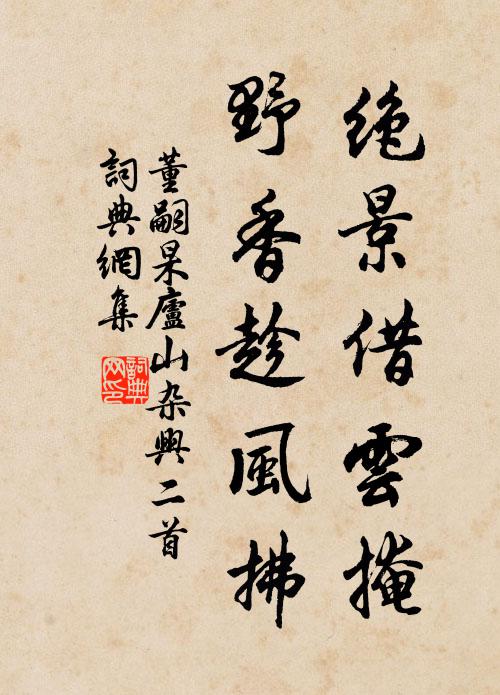 绝景借雲掩
野香趁風拂
董嗣杲廬山杂興二首
詞典網集
詞典
网印